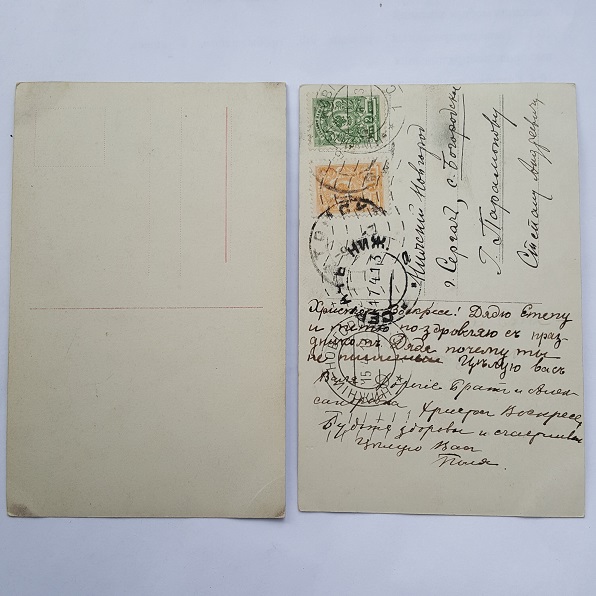 Нижній Новгородъ
г. Сергачъ, с. Богородское
Г. Парамонову
Степану Андреевичу
Христосъ Воскресе! Дядю Степу
и тетю поздравляю съ праз-
дникомъ Дядя почему ты
не пишешь Цѣлую васъ
Дорогіе Братъ и Алек-
сандровна Христосъ Воскресе,
Будьте здоровы и счастливы
Цѣлую Вас
Поля.